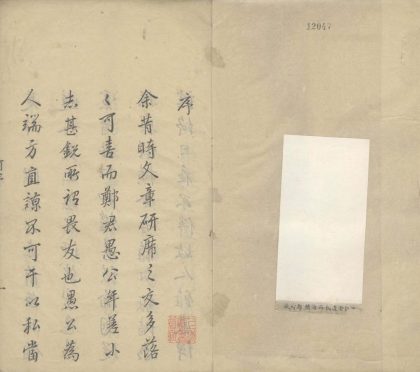 12047
序
余昔時文章研席之友多落
〻可喜而鄭君愚公年差小
志甚銳所謂畏友也愚公為
人端方直諒不可干以私當